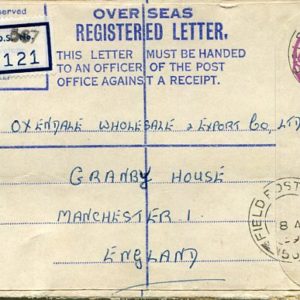 OVERSEAS
REGISTERED LETTER.
THIS LETTER MUST BE HANDED
TO AN OFFICER OF THE POST
OFFICE AGAINST A RECEIPT.
121
OXENDALE WHOLESALE & EXPORT CO, LTD
GRANBY HOUSE
MANCHESTER 1.
ENGLAND
FIELD POST
8 A